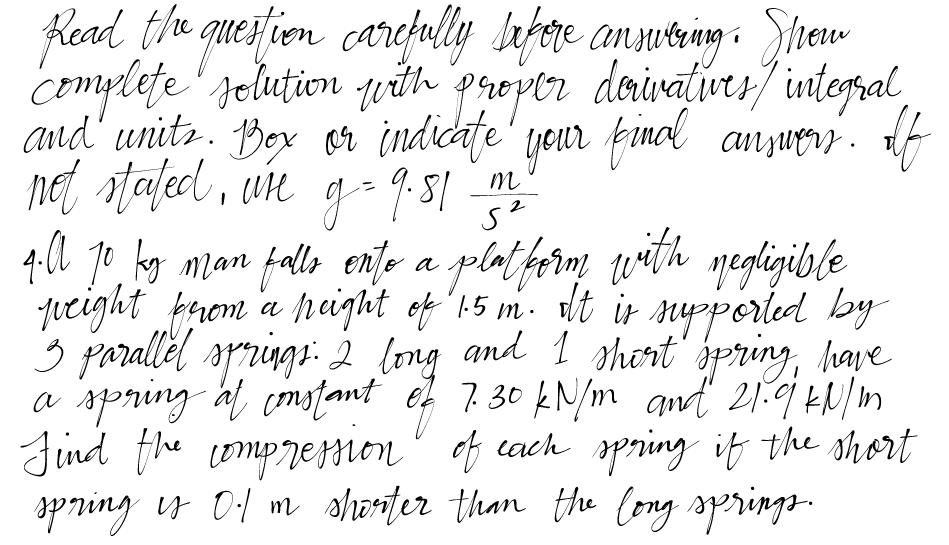 Read the question carefully before answering. Show
complete solution with proper derivatives/integral
and units. Box or indicate your final answers. If
not stated, use g = 9.81 m/s²
4. A 70 kg man falls onto a platform with negligible
weight from a height of 1.5 m. It is supported by
3 parallel springs. 2 long and 1 short spring, have
a spring at constant of 7.30 kN/m and 21.9 kN/m
Find the compression of each spring if the short
spring is 0.1 m shorter than the long springs.